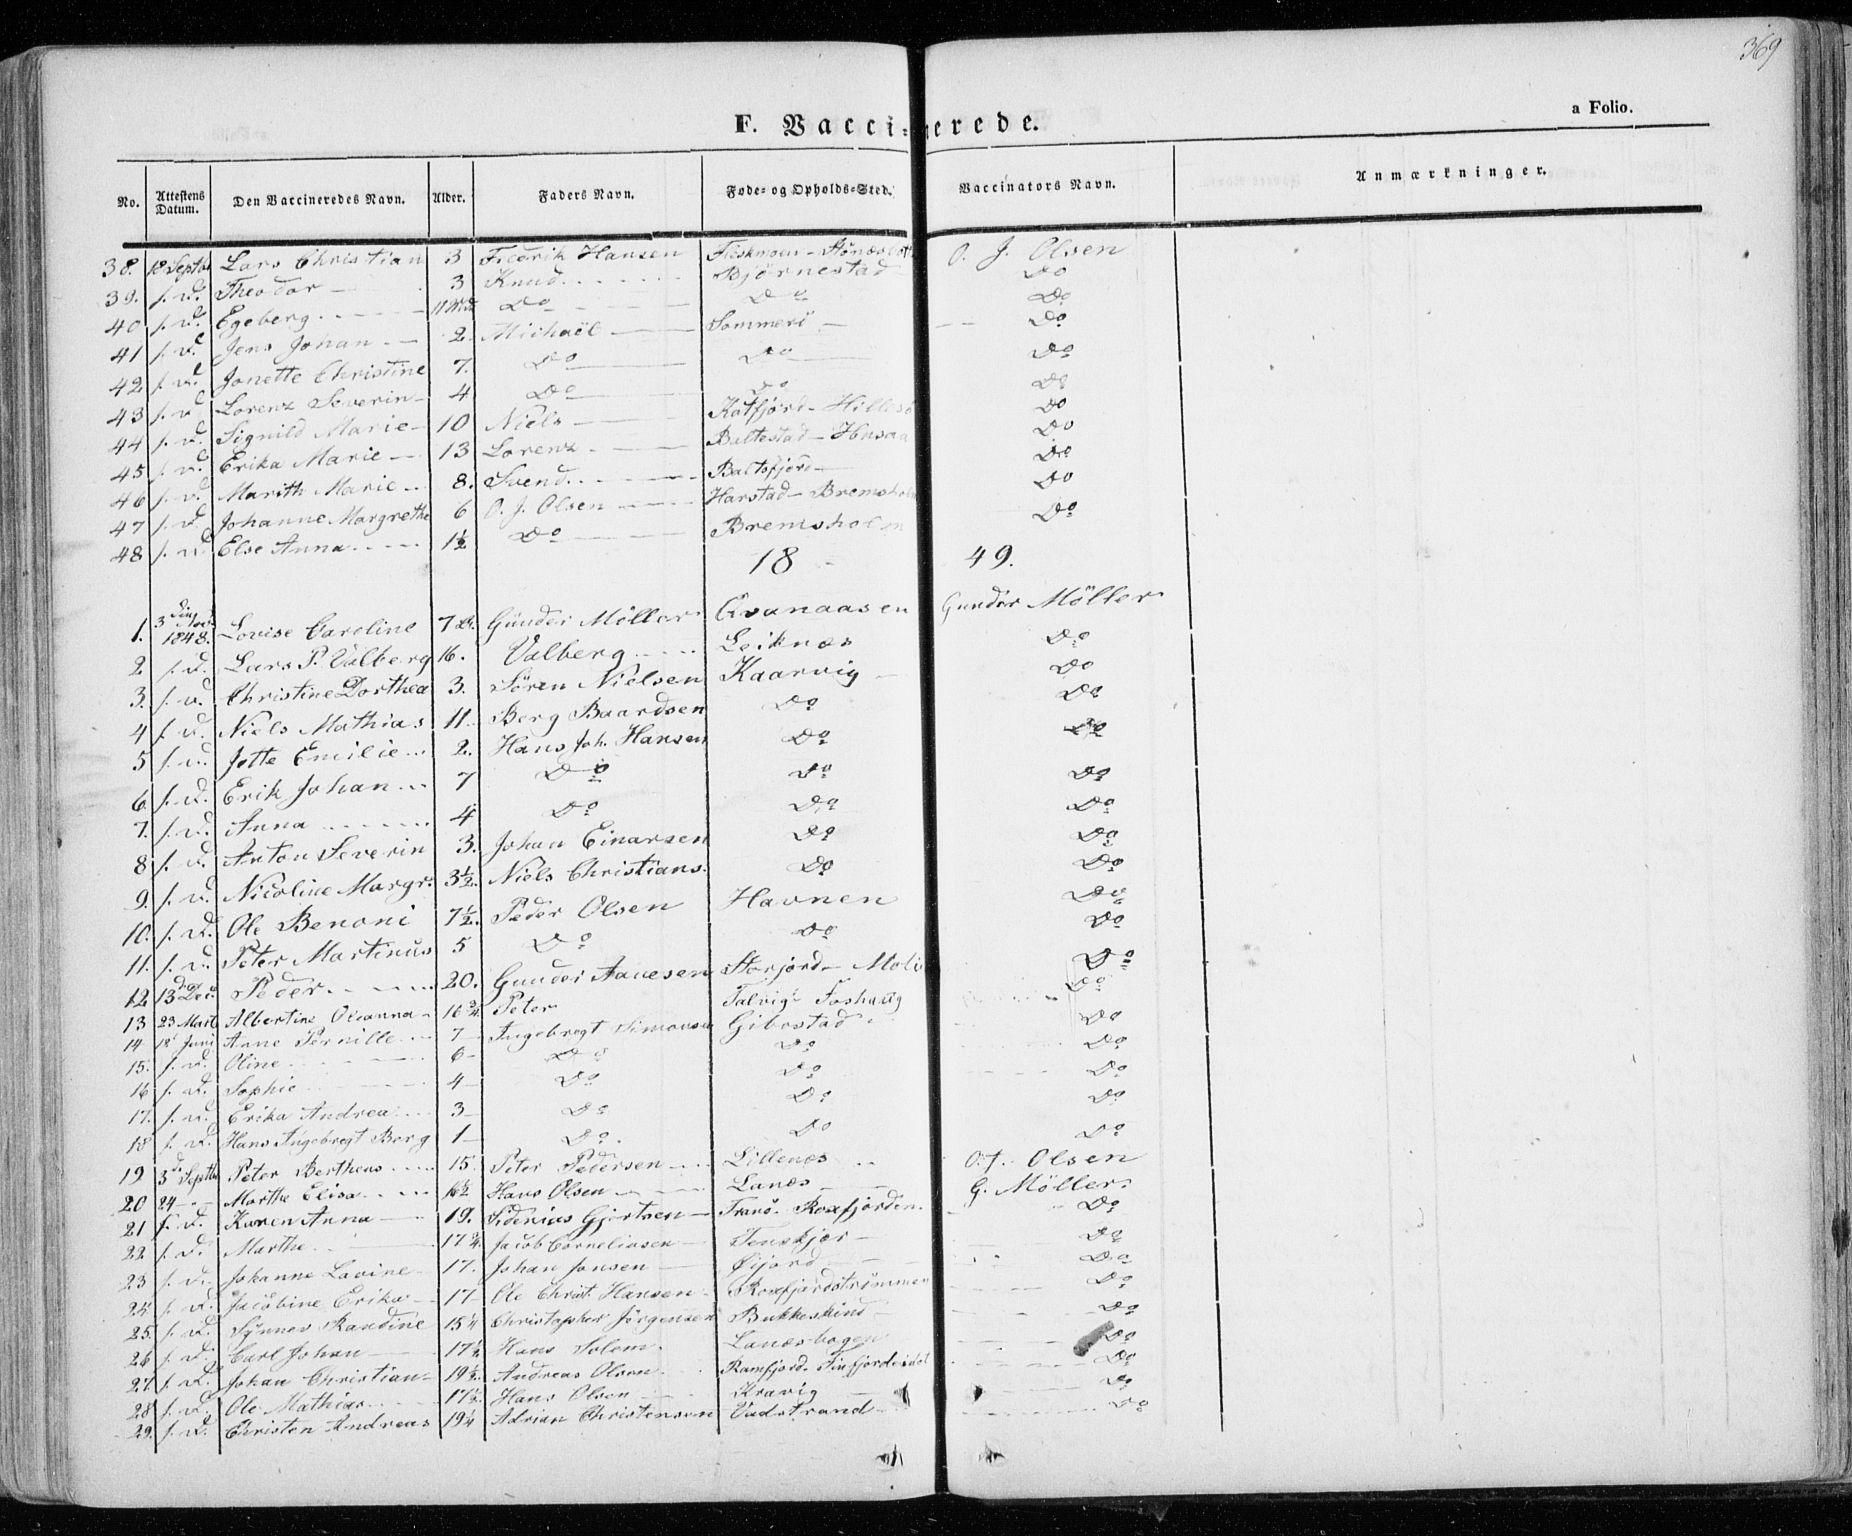 369
F. Vaccinerede.
a Folio.
No. Attestens Datum. Den Vaccineredes Navn. Alder. Faders Navn. Føde- og Opholds-Sted. Vaccinators Navn. Anmærkninger.
38. 18 Septbr Lars Christian 3 Hansen O. J. Olsen
39. s. D. Theodor 3 Knud Bjørnestad Do
40 s. D. Egeberg Do Do Do
41 s. D. Jens Johan 2. Michael Sommerö Do
42 s. D. Jonette Christine 7. Do Do Do
43 s. D. Lorenz Severin 4 Do Do Do
44 s. D. Signild Marie 10 Niels Katfjord - Hillesö Do
45 s. D. Erika Marie 13 Lorenz Baltestad Do
46 s. D. Marith Marie 8. Svend Baltsfjord Do
47 s. D. Johanne Margrethe 6 O. J. Olsen Harstad - Bremsholm Do
48 s. D. Else Anna 1½ Do Bremsholm Do
18 49.
1. 3 Nov. 1848. Lovise Caroline 7 Gunder Möller Qvanaasen Gunder Möller
2 s. D. Lars P. Valberg 16. Valberg Leiknæs Do
3. s. D. Christine Dorthea 3. Sören Nielsen Kaarvig Do
4 s. D. Niels Mathias 11. Berg Baardsen Do Do
5 s. D. Jotte Emilie 2. Hans Joh. Hansen Do Do
6 s. D. Erik Johan 7 Do Do Do
7. s. D. Anna 4 Do Do Do
8 s. D. Anton Severin 3. Johan Einarsen Do Do
9. s. D. Nicoline Margr. 3½. Niels Christians. Do Do
10. s. D. Ole Benoni 7½. Peder Olsen Havnen Do
11. s. D. Peter Martinus 5 Do Do Do
12 13 Dec. Peder 20. Gunder Aanesen Storjord Do
13 23 Mart Albertine Oleanna 16¾ Peter Talvig Do
14 18 Juni Anne Pernille 7 Ingebregt Simonsen Gibostad Do
15. s. D. Oline 6 Do Do Do
16 s. D. Sophie 4 Do Do Do
17. s. D. Erika Andrea 3 Do Do Do
18 s. D. Hans Ingebregt Berg 1 Do. Do Do
19 3 Septbr Peter Berthens 15 Peter Pedersen Lillenæs O. J. Olsen
20 24 Marthe Elisa 16½ Hans Olsen Lanæs G. Möller.
21 s. D. Karen Anna 19. Gjertsen Tranö. Roxfjorden. Do
22 s. D. Marthe 17¾ Jacob Corneliusen Tenskjær Do
23 s. D. Johanne Lovine 17. Johan Jonsen Øijord Do
24 s. D. Jacobine Erika 17 Ole Christ. Hansen Roxfjordströmmen Do
25. s. D. Synnev Randine 15¼ Christopher Jörgensen Bukkeskind Do
26 s. D. Carl Johan 17½ Hans Solem Lanæsbogen Do
27. s. D. Johan Christian 19½ Andreas Olsen Ramfjord. Finfjordeidet Do
28 s. D. Ole Mathias 17½ Hans Olsen Kravig Do
29. s. D. Christen Andreas 19¼ Adrian Christensen Vadstrand Do